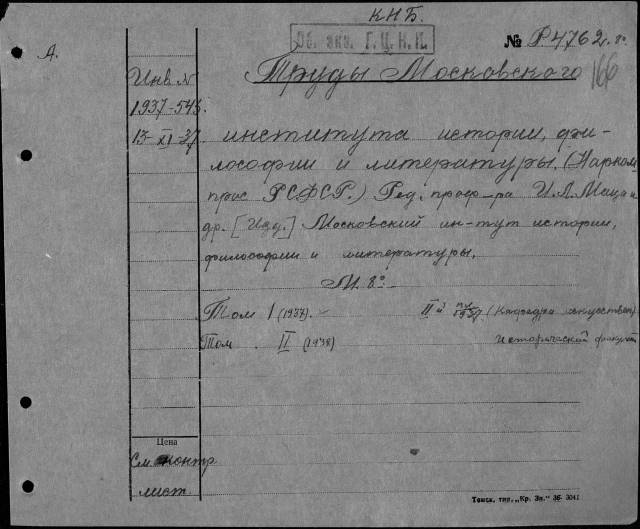 К.Н.Б.
Об. экз. Г.Ц.К.П.
№ Р4762.
А.
166
Труды Московского
Инв. №
1937-543.
13-XI-37.
института истории, фи-
лософии и литературы. (Нарком
прос РСФСР.) Ред. проф-ра И.Л. Маца и
др. [Изд.] Московский ин-тут истории,
философии и литературы.
М. 8°
Том I (1937). (Кафедра искусствен)
Том. II (1938) Исторический факуль
Цена
См. контр
лист.
Томск. тип. „Кр. Зн." 36-3041